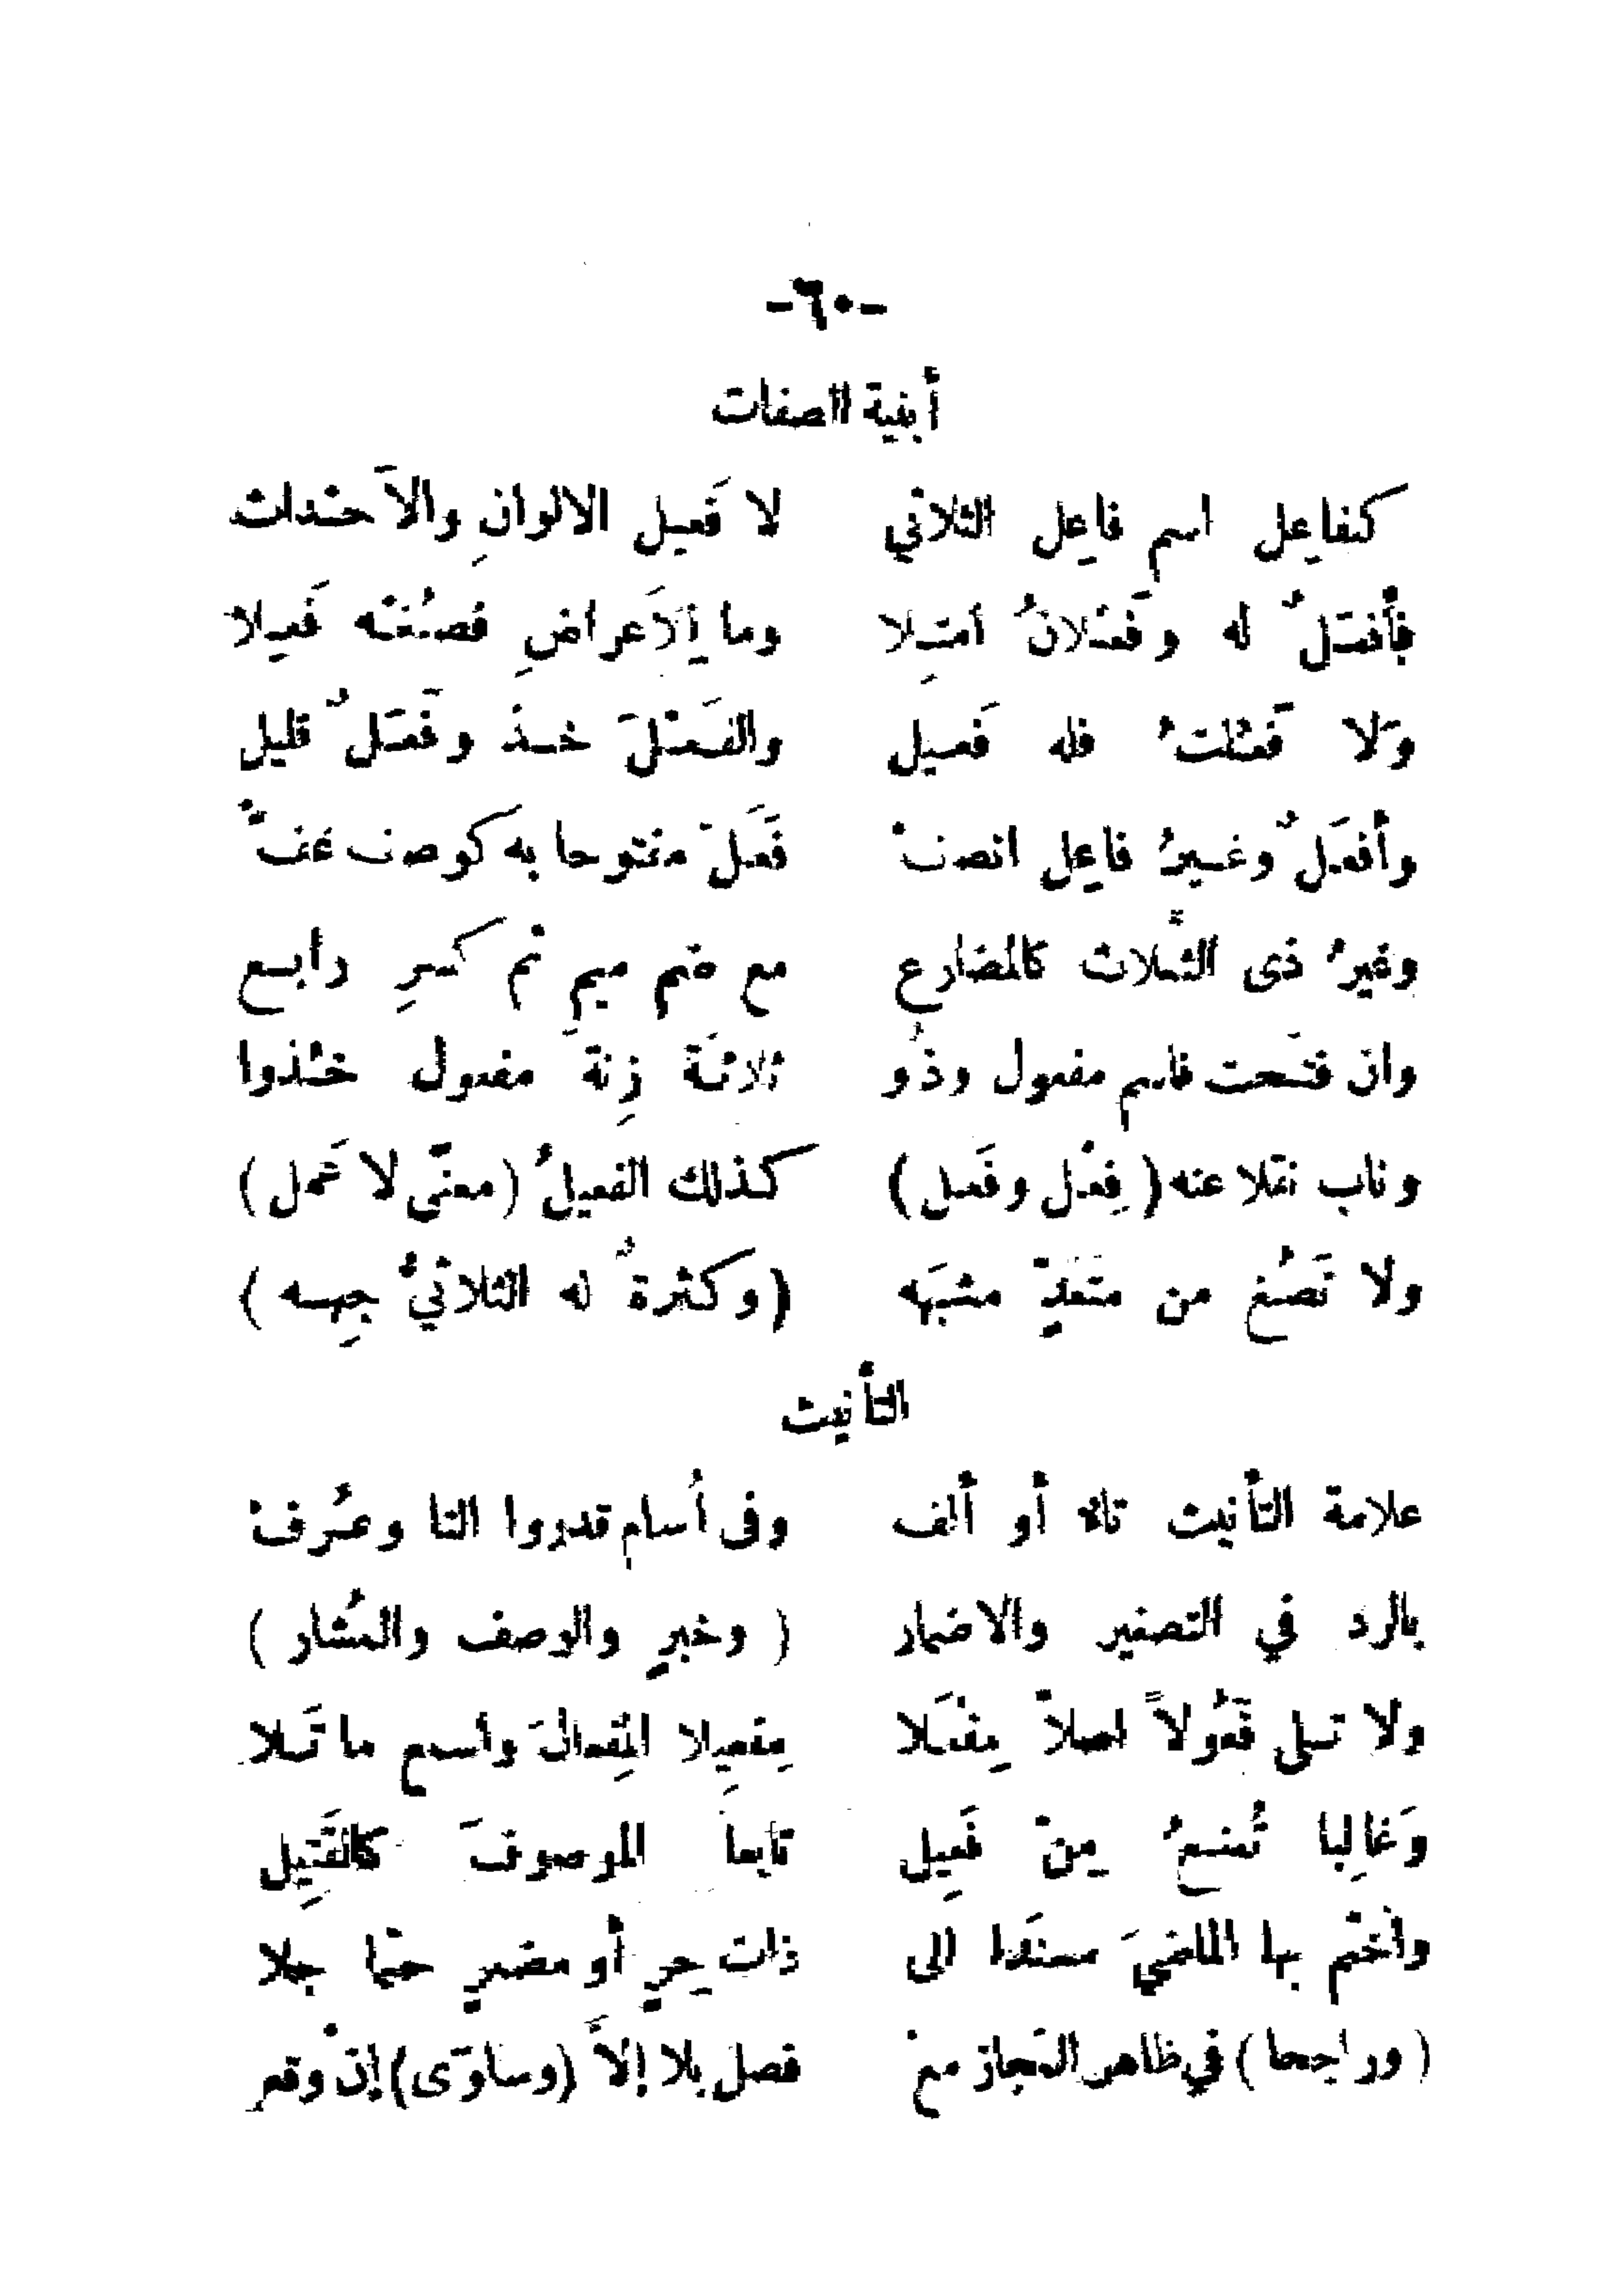 -٦٠-
أبنية الصفات
كفاعل اسم فاعل الثلاثي لا فَعِيل الالوانِ والآحْداث
فأفعَلٌ له وفَعْلانُ امتِلا وما لاَعراضِ فصُغْه فَعِلا
وَلا فَعُلتُ فله فَعيل والفَعْلَ خذ وفَعَلٌ قليل
وأفعَلٌ وغيرُ فاعِل اتصفْ فَعَلَ مفتوحا به كوصف عَفّ
وغيرُ ذى الثُّلاث كالمضارع مع ضم ميمٍ ثم كسرِ رابع
وان فتحت فاسم مفعول وذُو ثلاثَة زِنةَ مفعول خذوا
وناب نقلا عنه (فِعْل وفَعَل) كذلك الفعيلُ (معنًى لا عَمل)
ولا تَصُغ من متعَدٍّ مشبَهه (وكثرةٌ له الثلاثيُّ جِهه)
التأنيث
علامة التأنيث تاءٌ أو ألف وفى أَسام قدروا التا وعُرفْ
بالرد في التصغير والاضمار (وخبرٍ والوصف والمُشار)
ولا تلى فَعُولاً اصلاً مِفْعَلا مِفعِيلا المِفعالَ واسمع ما تَلا
وَغالِبا تُمنعُ مِنْ فَعِيل تابعا الموصوفَ كالقَتِيل
واختم بها الماضيَ مسنَدا الى ذات حِرٍ أو مضمرٍ حتما جلا
(وراجحا) في ظاهر المَجاز معْ فصل بلا إلاّ (وساوَى) إنْ وقع